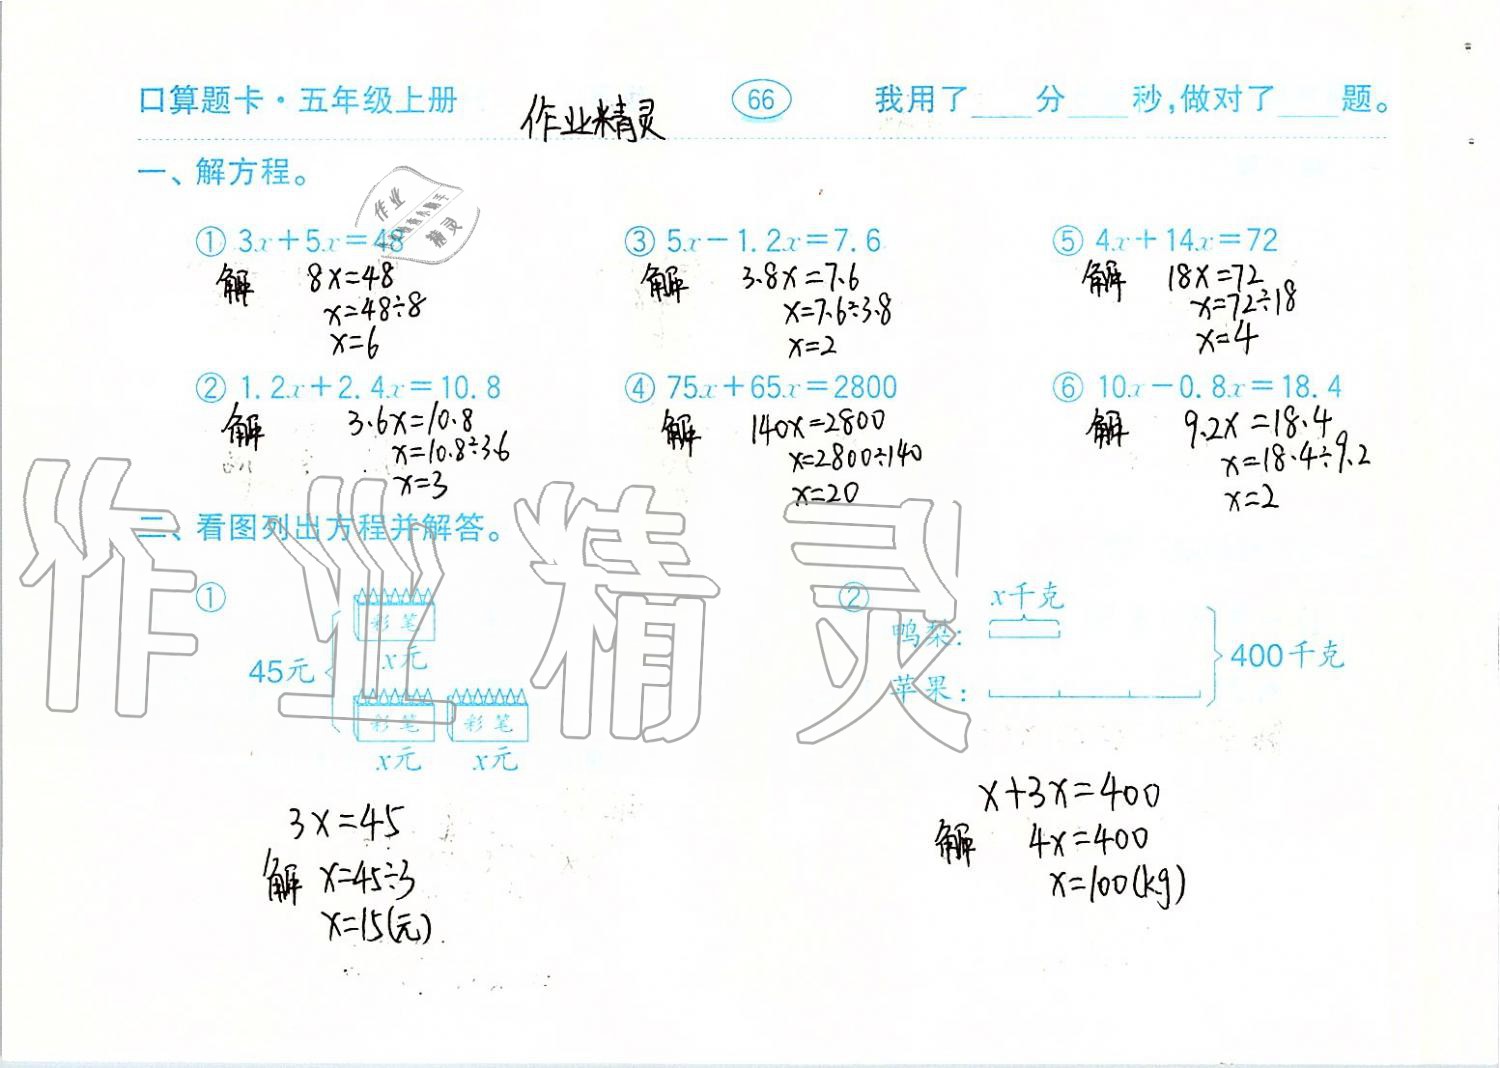 口算题卡·五年级上册
作业精灵
66
我用了____分____秒,做对了____题。
一、解方程。
作业
精灵
① 3x+5x=48
解 8x=48
x=48÷8
x=6
③ 5x-1.2x=7.6
解 3.8x=7.6
x=7.6÷3.8
x=2
⑤ 4x+14x=72
解 18x=72
x=72÷18
x=4
② 1.2x+2.4x=10.8
解 3.6x=10.8
x=10.8÷3.6
x=3
④ 75x+65x=2800
解 140x=2800
x=2800÷140
x=20
⑥ 10x-0.8x=18.4
解 9.2x=18.4
x=18.4÷9.2
x=2
二、看图列出方程并解答。
作业精灵
①
45元
彩笔
x元
彩笔 彩笔
x元 x元
3x=45
解 x=45÷3
x=15(元)
②
x千克
鸭梨:
苹果:
400千克
x+3x=400
解 4x=400
x=100(kg)